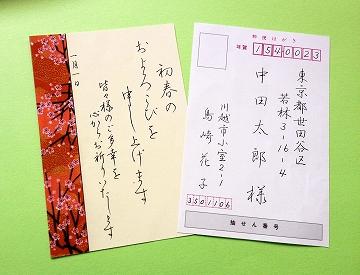 初春の
およろこびを
申し上げます
皆々様のご多幸を
心からお祈りいたします
一月一日
郵便はがき
年賀
1540023
東京都世田谷区
若林3-16-4
中田太郎様
川越市小室2-1
島崎花子
3501106
抽せん番号